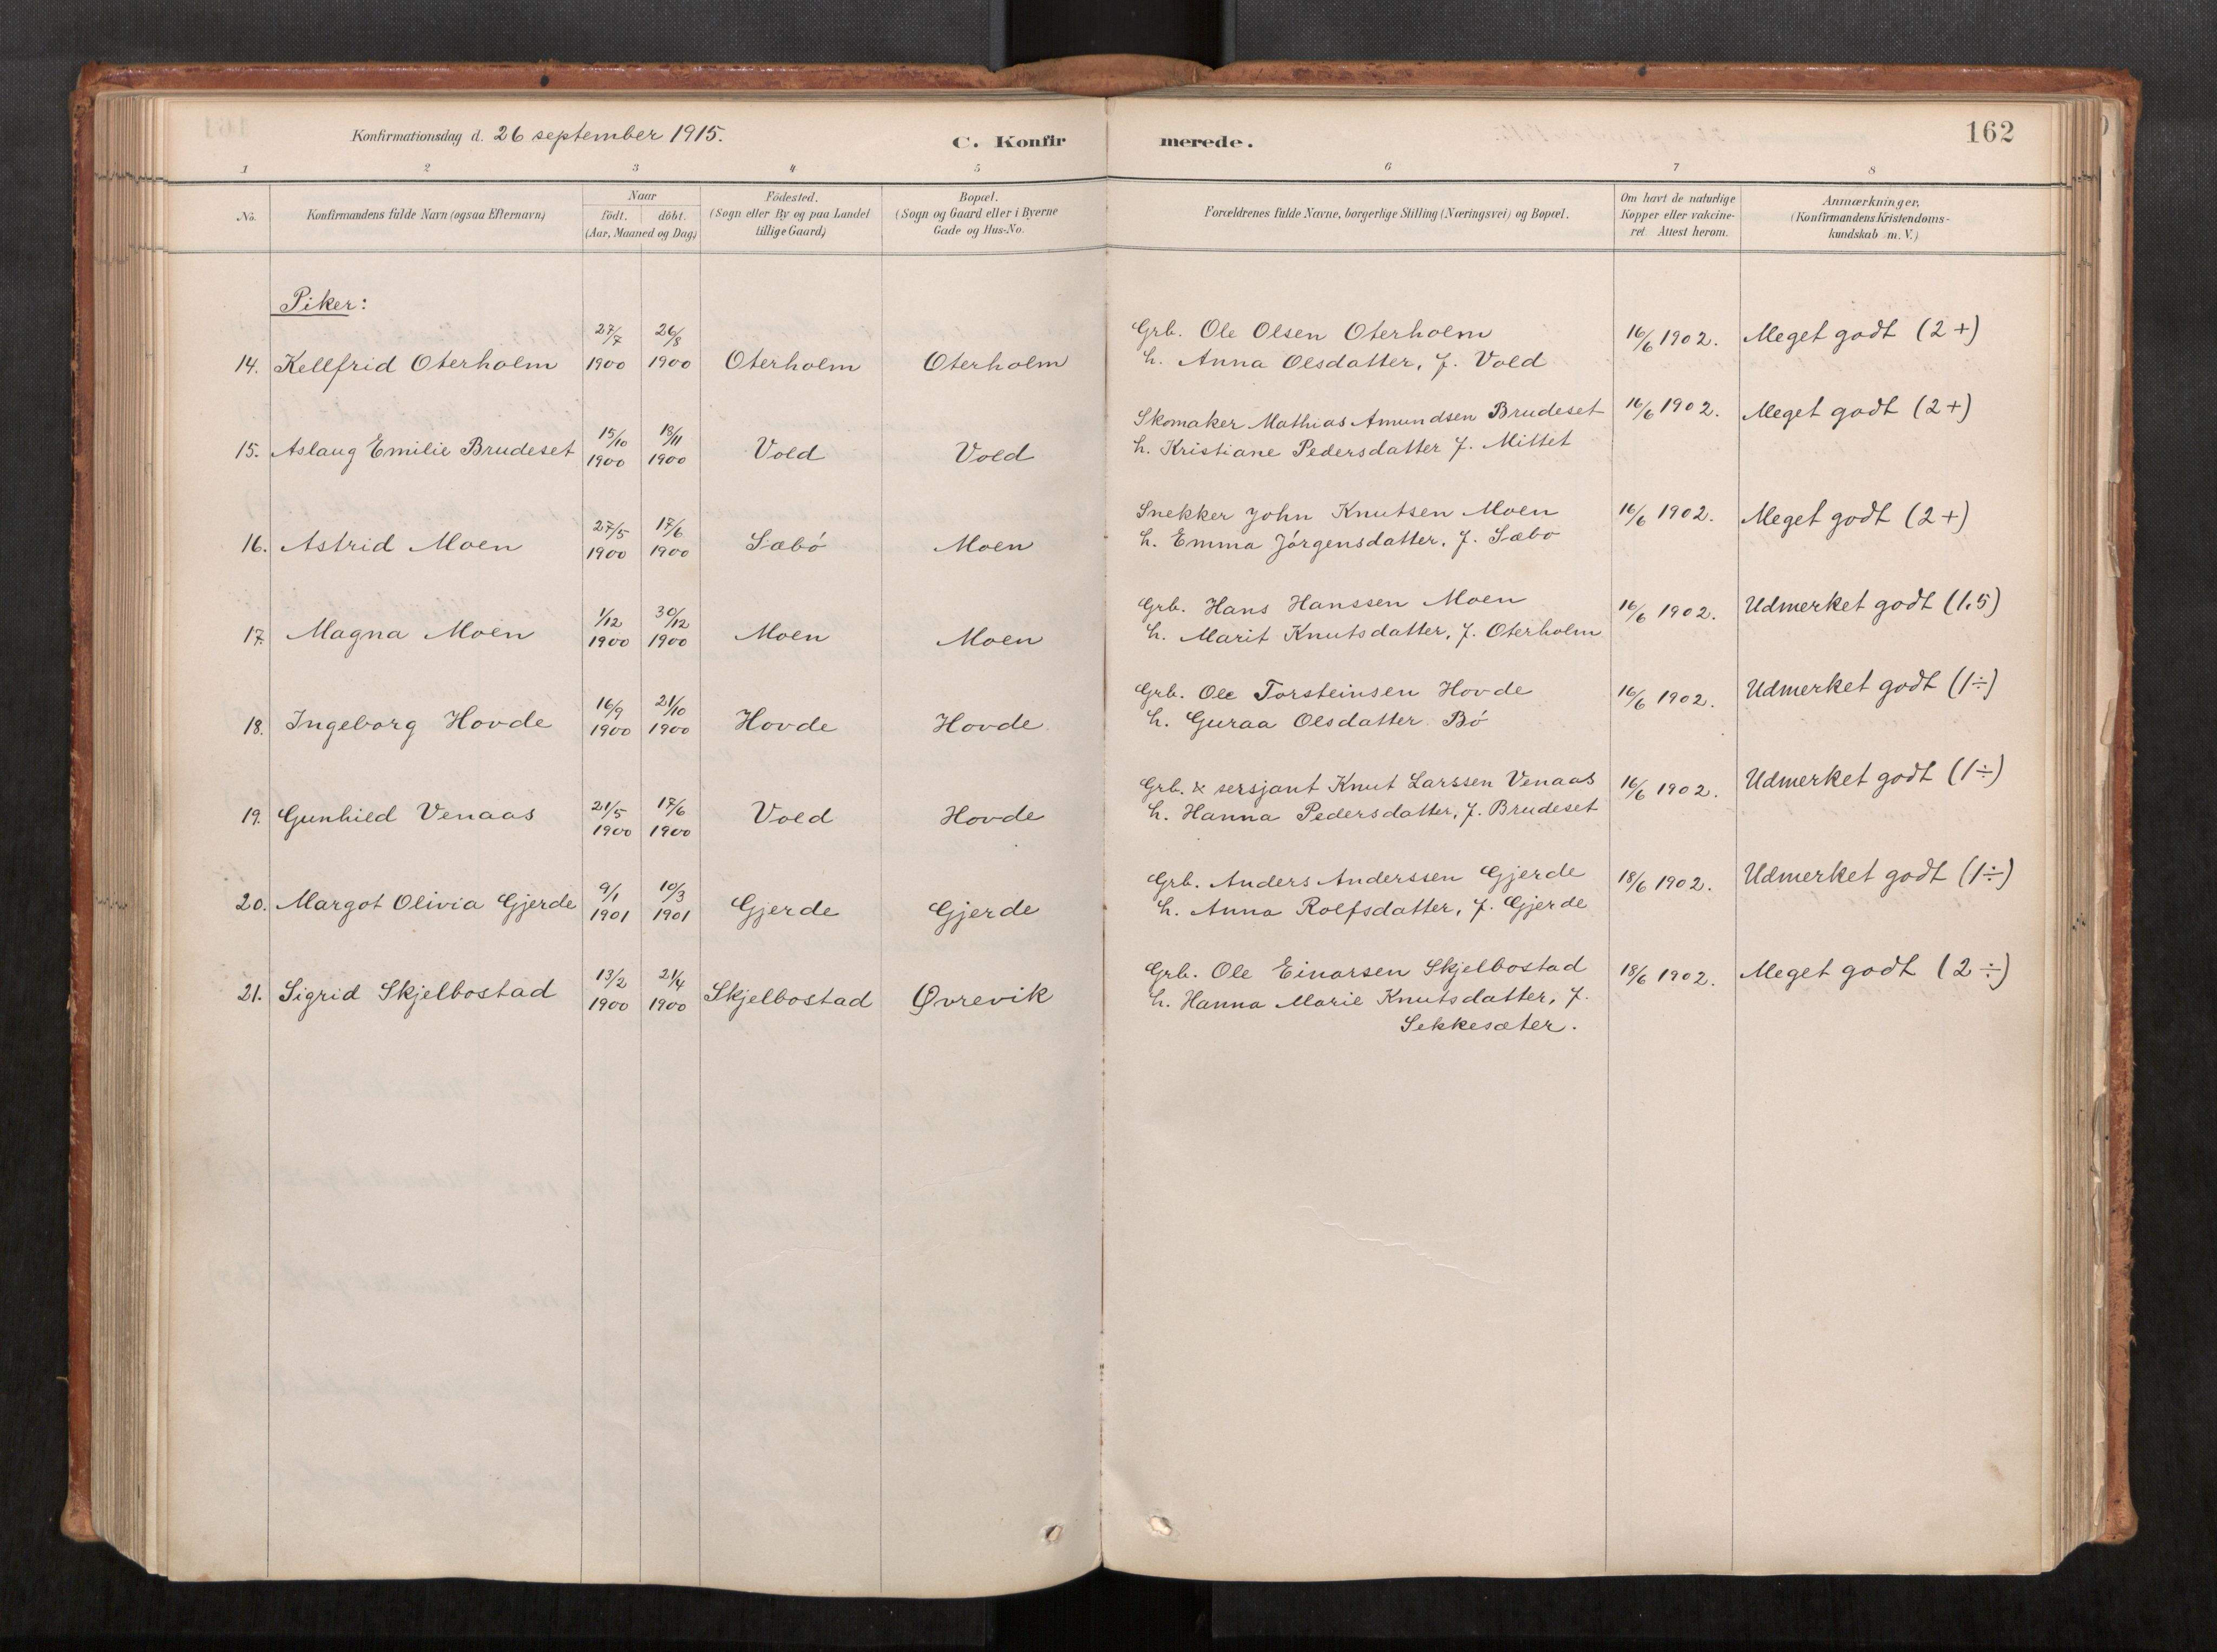 Konfirmationsdag d. 26 september 1915.
C. Konfir
merede.
162
1 2 3 4 5 6 7 8
No.
Konfirmandens fulde Navn (ogsaa Efternavn)
Naar
födt. döbt.
(Aar, Maaned og Dag)
Födested.
(Sogn eller By og paa Landet
tillige Gaard)
Bopæl.
(Sogn og Gaard eller i Byerne
Gade og Hus-No.
Forældrenes fulde Navne, borgerlige Stilling (Næringsvei) og Bopæl.
Om havt de naturlige
Kopper eller vakcine-
ret. Attest herom.
Anmærkninger.
(Konfirmandens Kristendoms-
kundskab m. V.)
Piker:
27/7 26/8 Grb. Ole Olsen Oterholm 16/6 1902. Meget godt (2+)
14. Kellfrid Oterholm 1900 1900 Oterholm Oterholm h. Anna Olsdatter, f. Vold
15/10 18/11 Skomaker Mathias Amundsen Brudeset 16/6 1902. Meget godt (2+)
15. Aslaug Emilie Brudeset 1900 1900 Vold Vold h. Kristiane Pedersdatter f. Mittet
27/5 17/6 Snekker John Knutsen Moen 16/6 1902. Meget godt (2+)
16. Astrid Moen 1900 1900 Sæbó Moen h. Emma Jórgensdatter, f. Sæbo
1/12 30/12 Grb. Hans Hanssen Moen 16/6 1902. Udmerket godt (1,5)
17. Magna Moen 1900 1900 Moen Moen h. Marit Knutsdatter, f. Oterholm
16/9 21/10 Grb. Ole Torsteinsen Hovde 16/6 1902. Udmerket godt (1÷)
18. Ingeborg Hovde 1900 1900 Hovde Hovde h. Guraa Olsdatter Bó
21/5 17/6 Grb. & sersjant Knut Larssen Venaas 16/6 1902. Udmerket godt (1÷)
19. Gunhild Venaas 1900 1900 Vold Hovde h. Hanna Pedersdatter, f. Brudeset
9/1 10/3 Grb. Anders Anderssen Gjerde 18/6 1902. Udmerket godt (1÷)
20. Margot Olivia Gjerde 1901 1901 Gjerde Gjerde h. Anna Rolfsdatter, f. Gjerde
13/2 21/4 Grb. Ole Einarsen Skjelbostad 18/6 1902. Meget godt (2÷)
21. Sigrid Skjelbostad 1900 1900 Skjelbostad Øvrevik h. Hanna Marie Knutsdatter, f.
Sekkesæter.